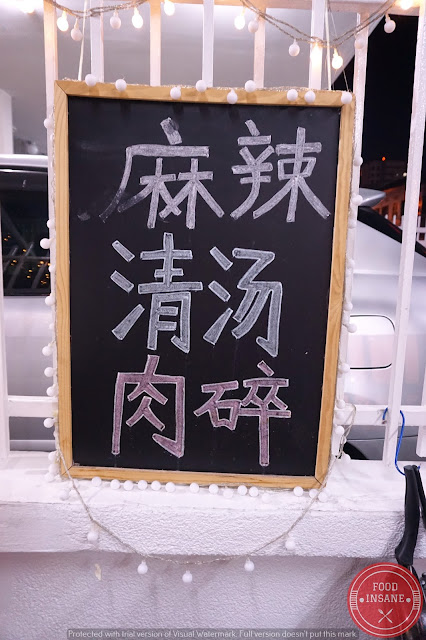 麻辣
清汤
肉碎
FOOD
INSANE
Protected with trial version of Visual Watermark. Full version doesn't put this mark.